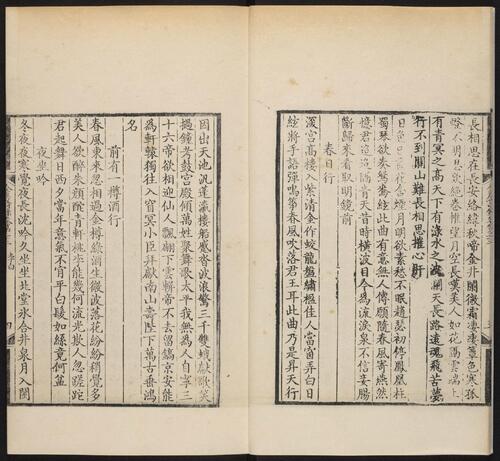 長相思在長安絡緯秋啼金井闌微霜凄凄簟色寒孤
燈不明思欲絕卷帷望月空長嘆美人如花隔雲端上
有青冥之高天下有淥水之波瀾天長路遠魂飛苦夢
不到關山難長相思摧心肝
日色已盡花含煙月明欲素愁不眠趙瑟初停鳳凰柱
蜀琴欲奏鴛鴦絃此曲有意無人傳願隨春風寄燕然
憶君迢迢隔青天昔時橫波目今為流淚泉不信妾腸
斷歸來看取明鏡前
春日行
深宮高樓入紫清金作蛟龍盤繡楹佳人當窗弄白日
絃將手語彈鳴箏春風吹落君王耳此曲乃是昇天行
因出天池汎蓬瀛樓船蹙沓波浪驚三千雙蛾獻歌笑
撾鐘考鼓宮殿傾萬姓聚舞歌太平我無為人自寧三
十六帝欲相迎仙人飄翩下雲軿帝不去留鎬京安能
為軒轅獨往入窅冥小臣拜獻南山壽陛下萬古垂鴻
名
前有一樽酒行
春風東來忽相過金樽綠酒生微波落花紛紛稍覺多
美人欲醉朱顏酡青軒桃李能幾何流光欺人忽蹉跎
君起舞日西夕當年意氣不肯平白髮如絲歎何益
夜坐吟
冬夜夜寒覺夜長沈吟久坐坐北堂冰合井泉月入閨